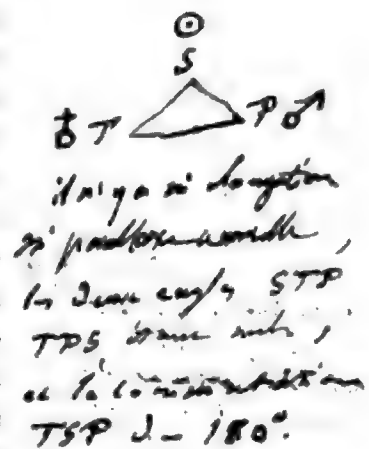 ☉
S
♁ T P ♂
il n'y a ni élongation
ni parallaxe annuelle,
les deux angles STP
TPS étant nuls,
et la commutation
TSP de 180°.